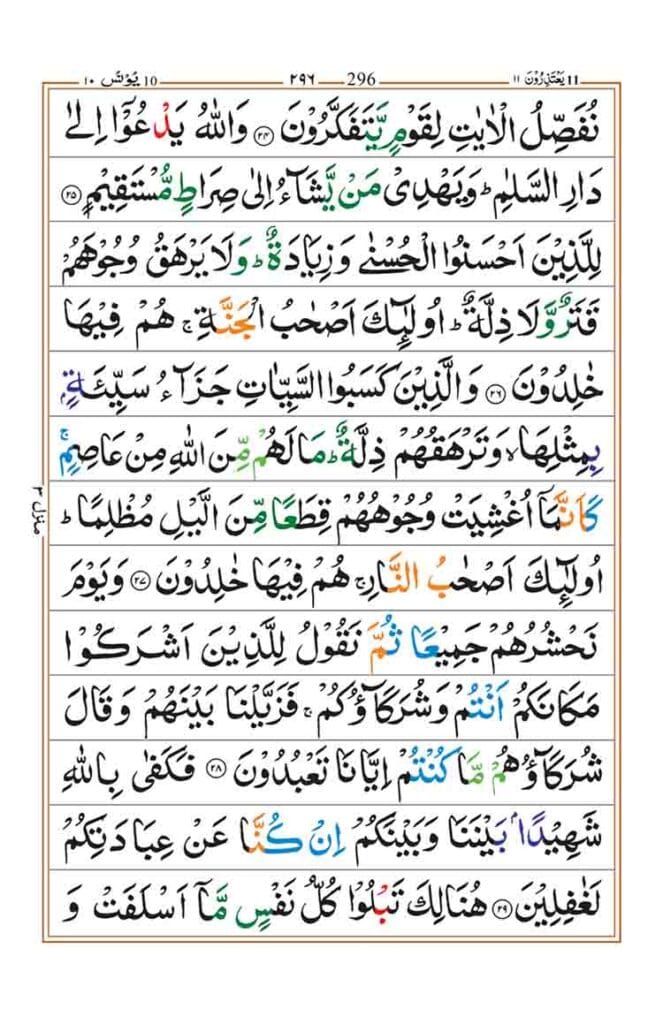 يَعْتَذِرُوْنَ ١١ 11 296 ٢٩٦ يُوْنُس ١٠ 10
نُفَصِّلُ الْاٰيٰتِ لِقَوْمٍ يَّتَفَكَّرُوْنَ ﴿٢٤﴾ وَاللّٰهُ يَدْعُوْٓا اِلٰى
دَارِ السَّلٰمِ ؕ وَيَهْدِىْ مَنْ يَّشَآءُ اِلٰى صِرَاطٍ مُّسْتَقِيْمٍ ﴿٢٥﴾
لِلَّذِيْنَ اَحْسَنُوا الْحُسْنٰى وَزِيَادَةٌ ؕ وَلَا يَرْهَقُ وُجُوْهَهُمْ
قَتَرٌ وَّلَا ذِلَّةٌ ؕ اُولٰٓئِكَ اَصْحٰبُ الْجَنَّةِ ۚ هُمْ فِيْهَا
خٰلِدُوْنَ ﴿٢٦﴾ وَالَّذِيْنَ كَسَبُوا السَّيِّاٰتِ جَزَآءُ سَيِّئَةٍۭ
بِمِثْلِهَا ۙ وَتَرْهَقُهُمْ ذِلَّةٌ ؕ مَا لَهُمْ مِّنَ اللّٰهِ مِنْ عَاصِمٍ ۚ
كَاَنَّمَاۤ اُغْشِيَتْ وُجُوْهُهُمْ قِطَعًا مِّنَ الَّيْلِ مُظْلِمًا ؕ
اُولٰٓئِكَ اَصْحٰبُ النَّارِ ۚ هُمْ فِيْهَا خٰلِدُوْنَ ﴿٢٧﴾ وَيَوْمَ
نَحْشُرُهُمْ جَمِيْعًا ثُمَّ نَقُوْلُ لِلَّذِيْنَ اَشْرَكُوْا
مَكَانَكُمْ اَنْتُمْ وَشُرَكَآؤُكُمْ ۚ فَزَيَّلْنَا بَيْنَهُمْ وَقَالَ
شُرَكَآؤُهُمْ مَّا كُنْتُمْ اِيَّانَا تَعْبُدُوْنَ ﴿٢٨﴾ فَكَفٰى بِاللّٰهِ
شَهِيْدًۢا بَيْنَنَا وَبَيْنَكُمْ اِنْ كُنَّا عَنْ عِبَادَتِكُمْ
لَغٰفِلِيْنَ ﴿٢٩﴾ هُنَالِكَ تَبْلُوْا كُلُّ نَفْسٍ مَّاۤ اَسْلَفَتْ وَ
منزل ٣